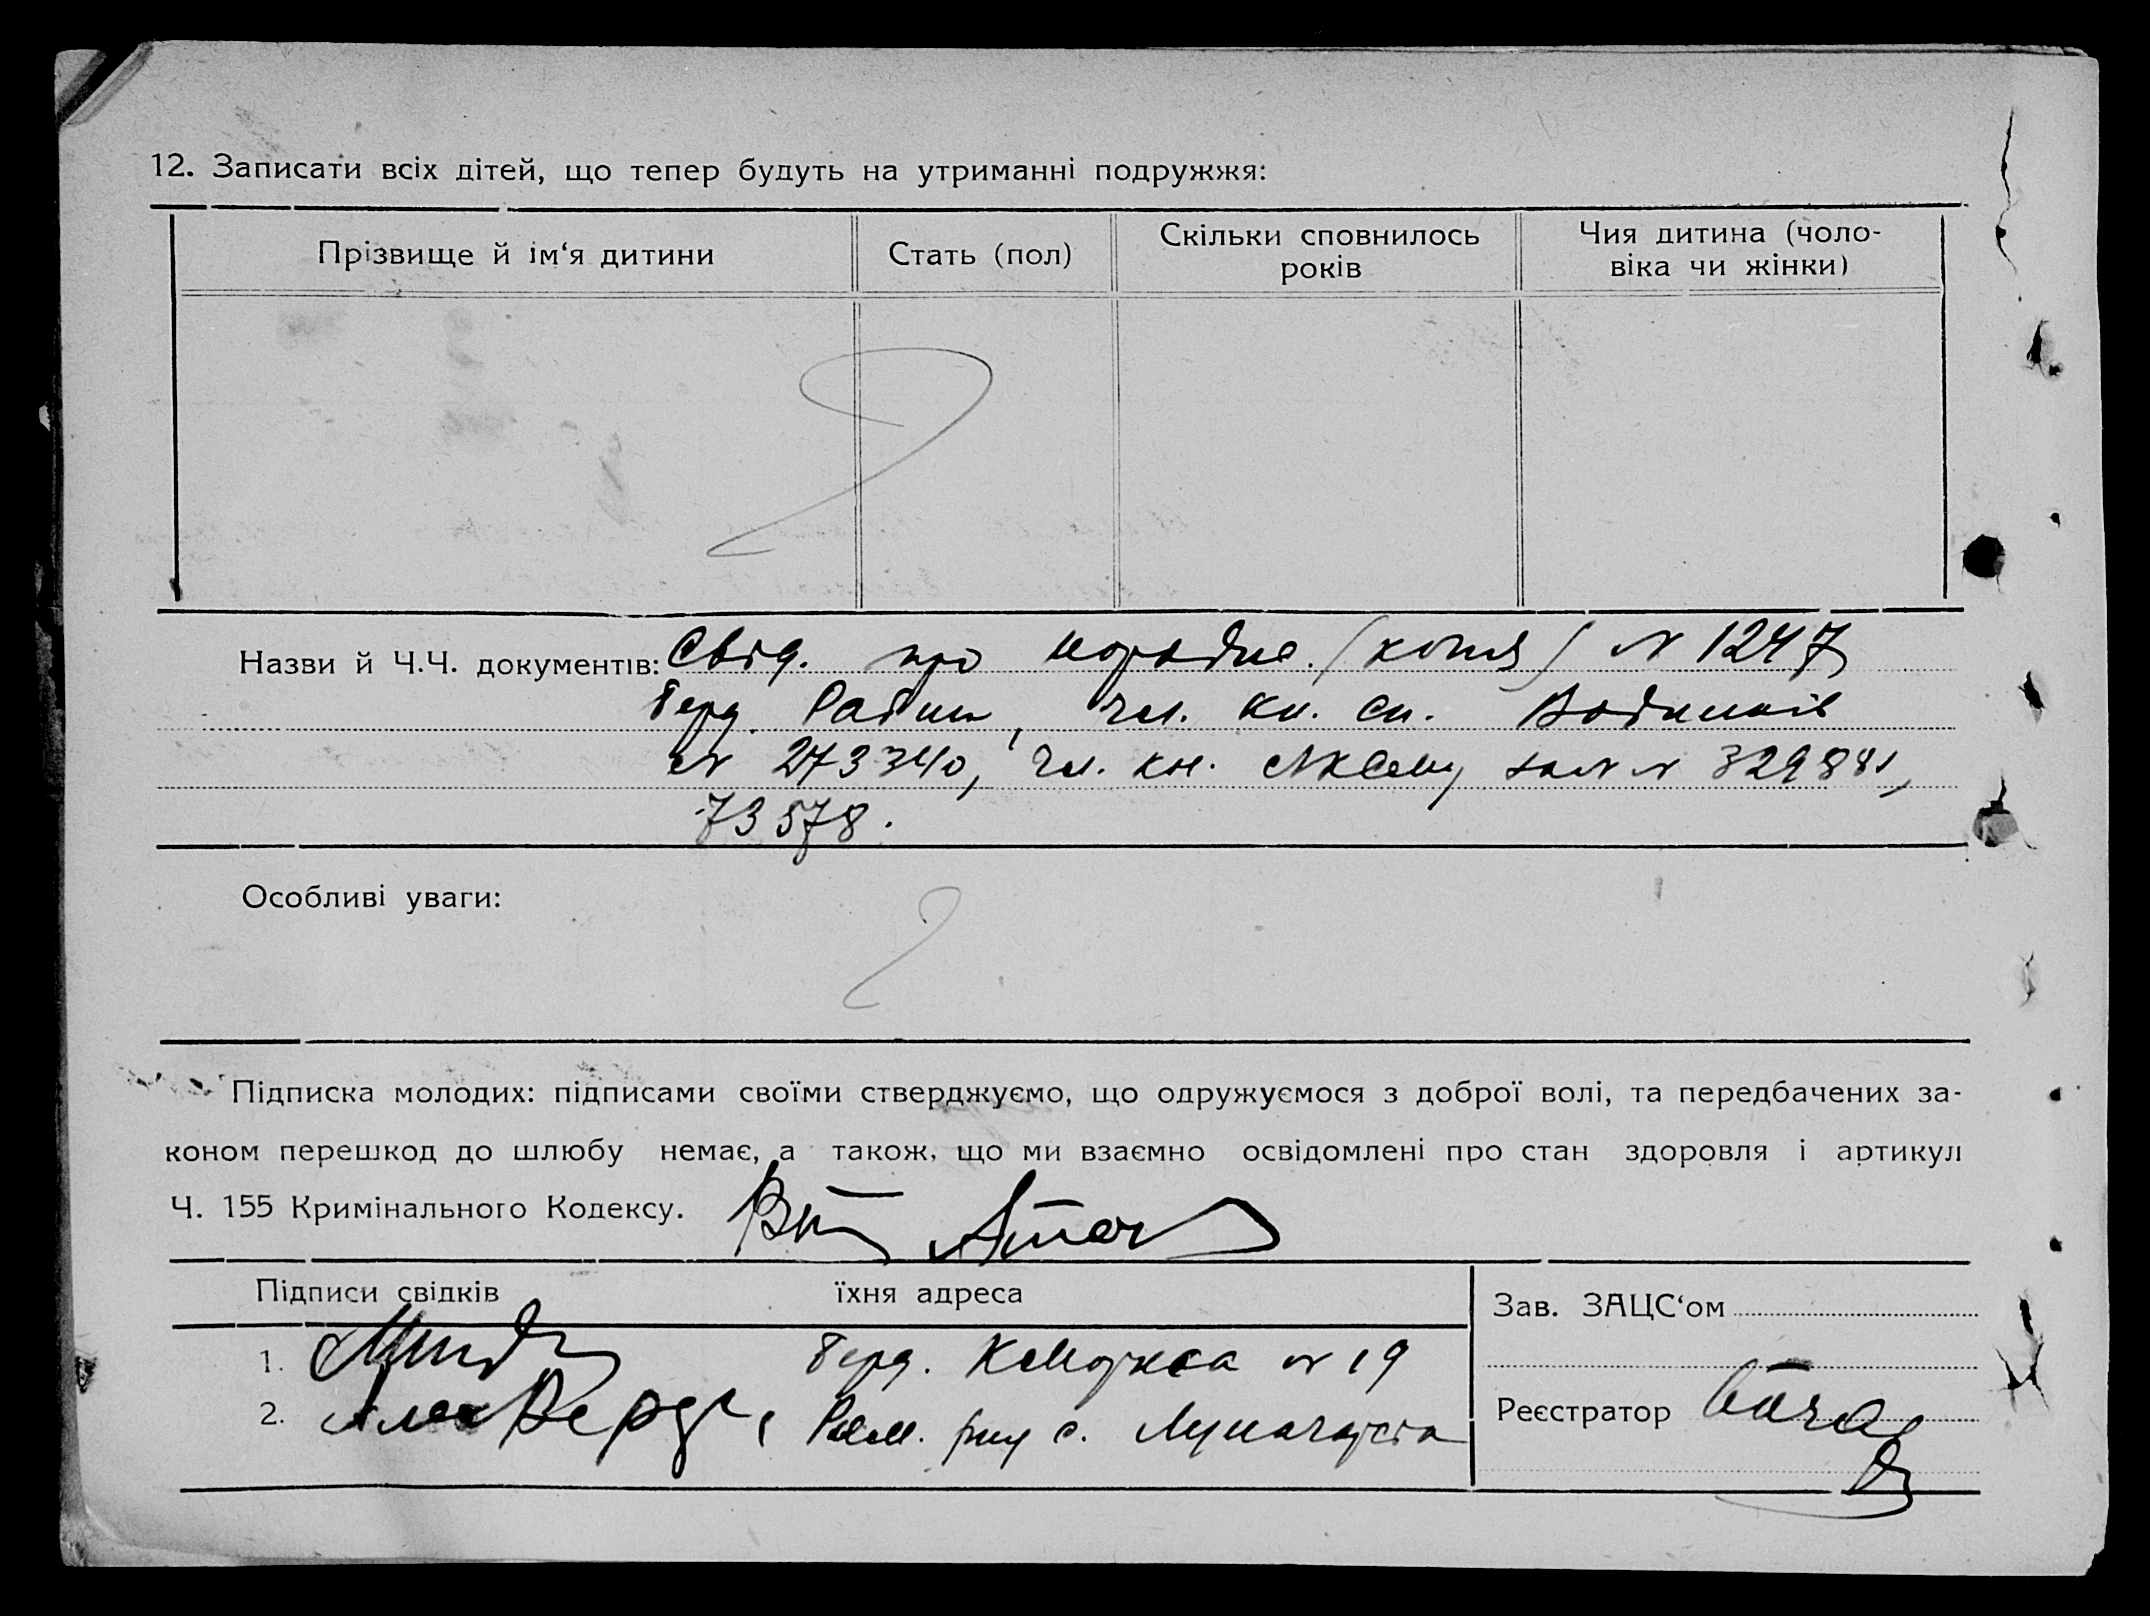 12. Записати всіх дітей, що тепер будуть на утриманні подружжя:
Прізвище й ім‘я дитини
Стать (пол)
Скільки сповнилось
років
Чия дитина (чоло-
віка чи жінки)
Назви й Ч.Ч. документів: Свід. про народже. (копія) № 1247
Берд. , чл. кн. сп.
№ 273340, чл. кн. № № 329881,
73578.
Особливі уваги:
Підписка молодих: підписами своїми стверджуємо, що одружуємося з доброї волі, та передбачених за-
коном перешкод до шлюбу немає, а також, що ми взаємно освідомлені про стан здоровля і артикул
Ч. 155 Кримінального Кодексу.
Підписи свідків
їхня адреса
1. Берд. № 19
2. с.
Зав. ЗАЦС‘ом
Реєстратор